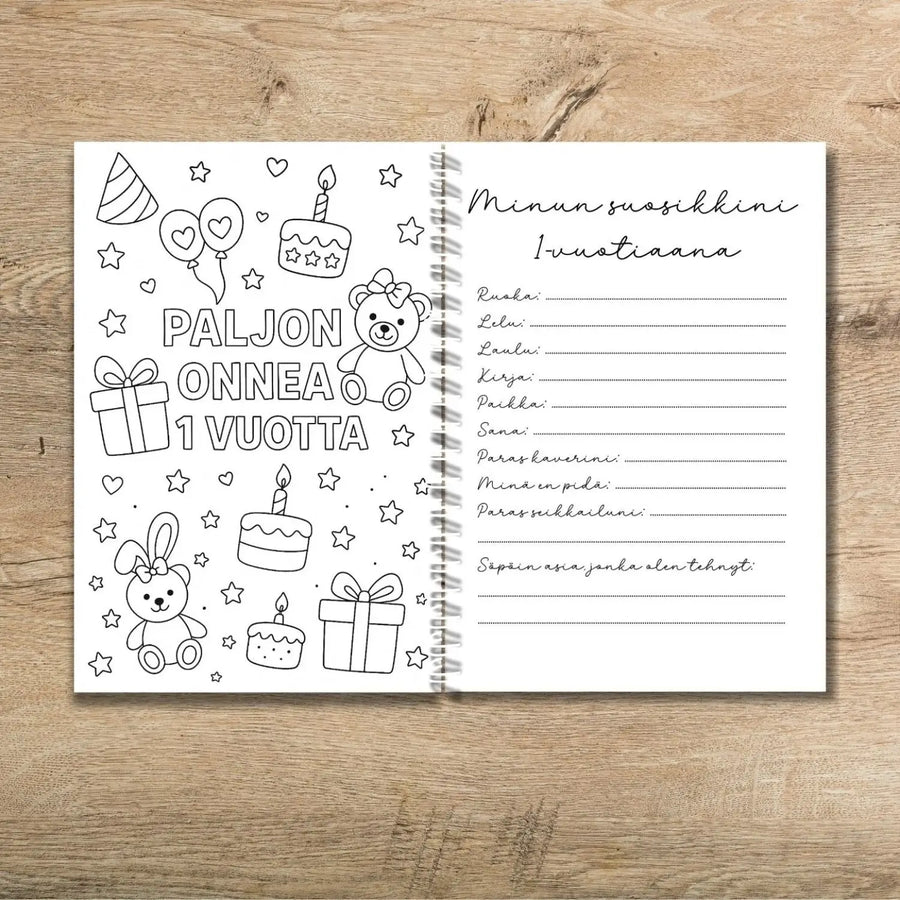 PALJON
ONNEA
1 VUOTTA
Minun suosikkini
1-vuotiaana
Ruoka:
Lelu:
Laulu:
Kirja:
Paikka:
Sana:
Paras kaverini:
Minä en pidä:
Paras seikkailuni:
Söpöin asia, jonka olen tehnyt: